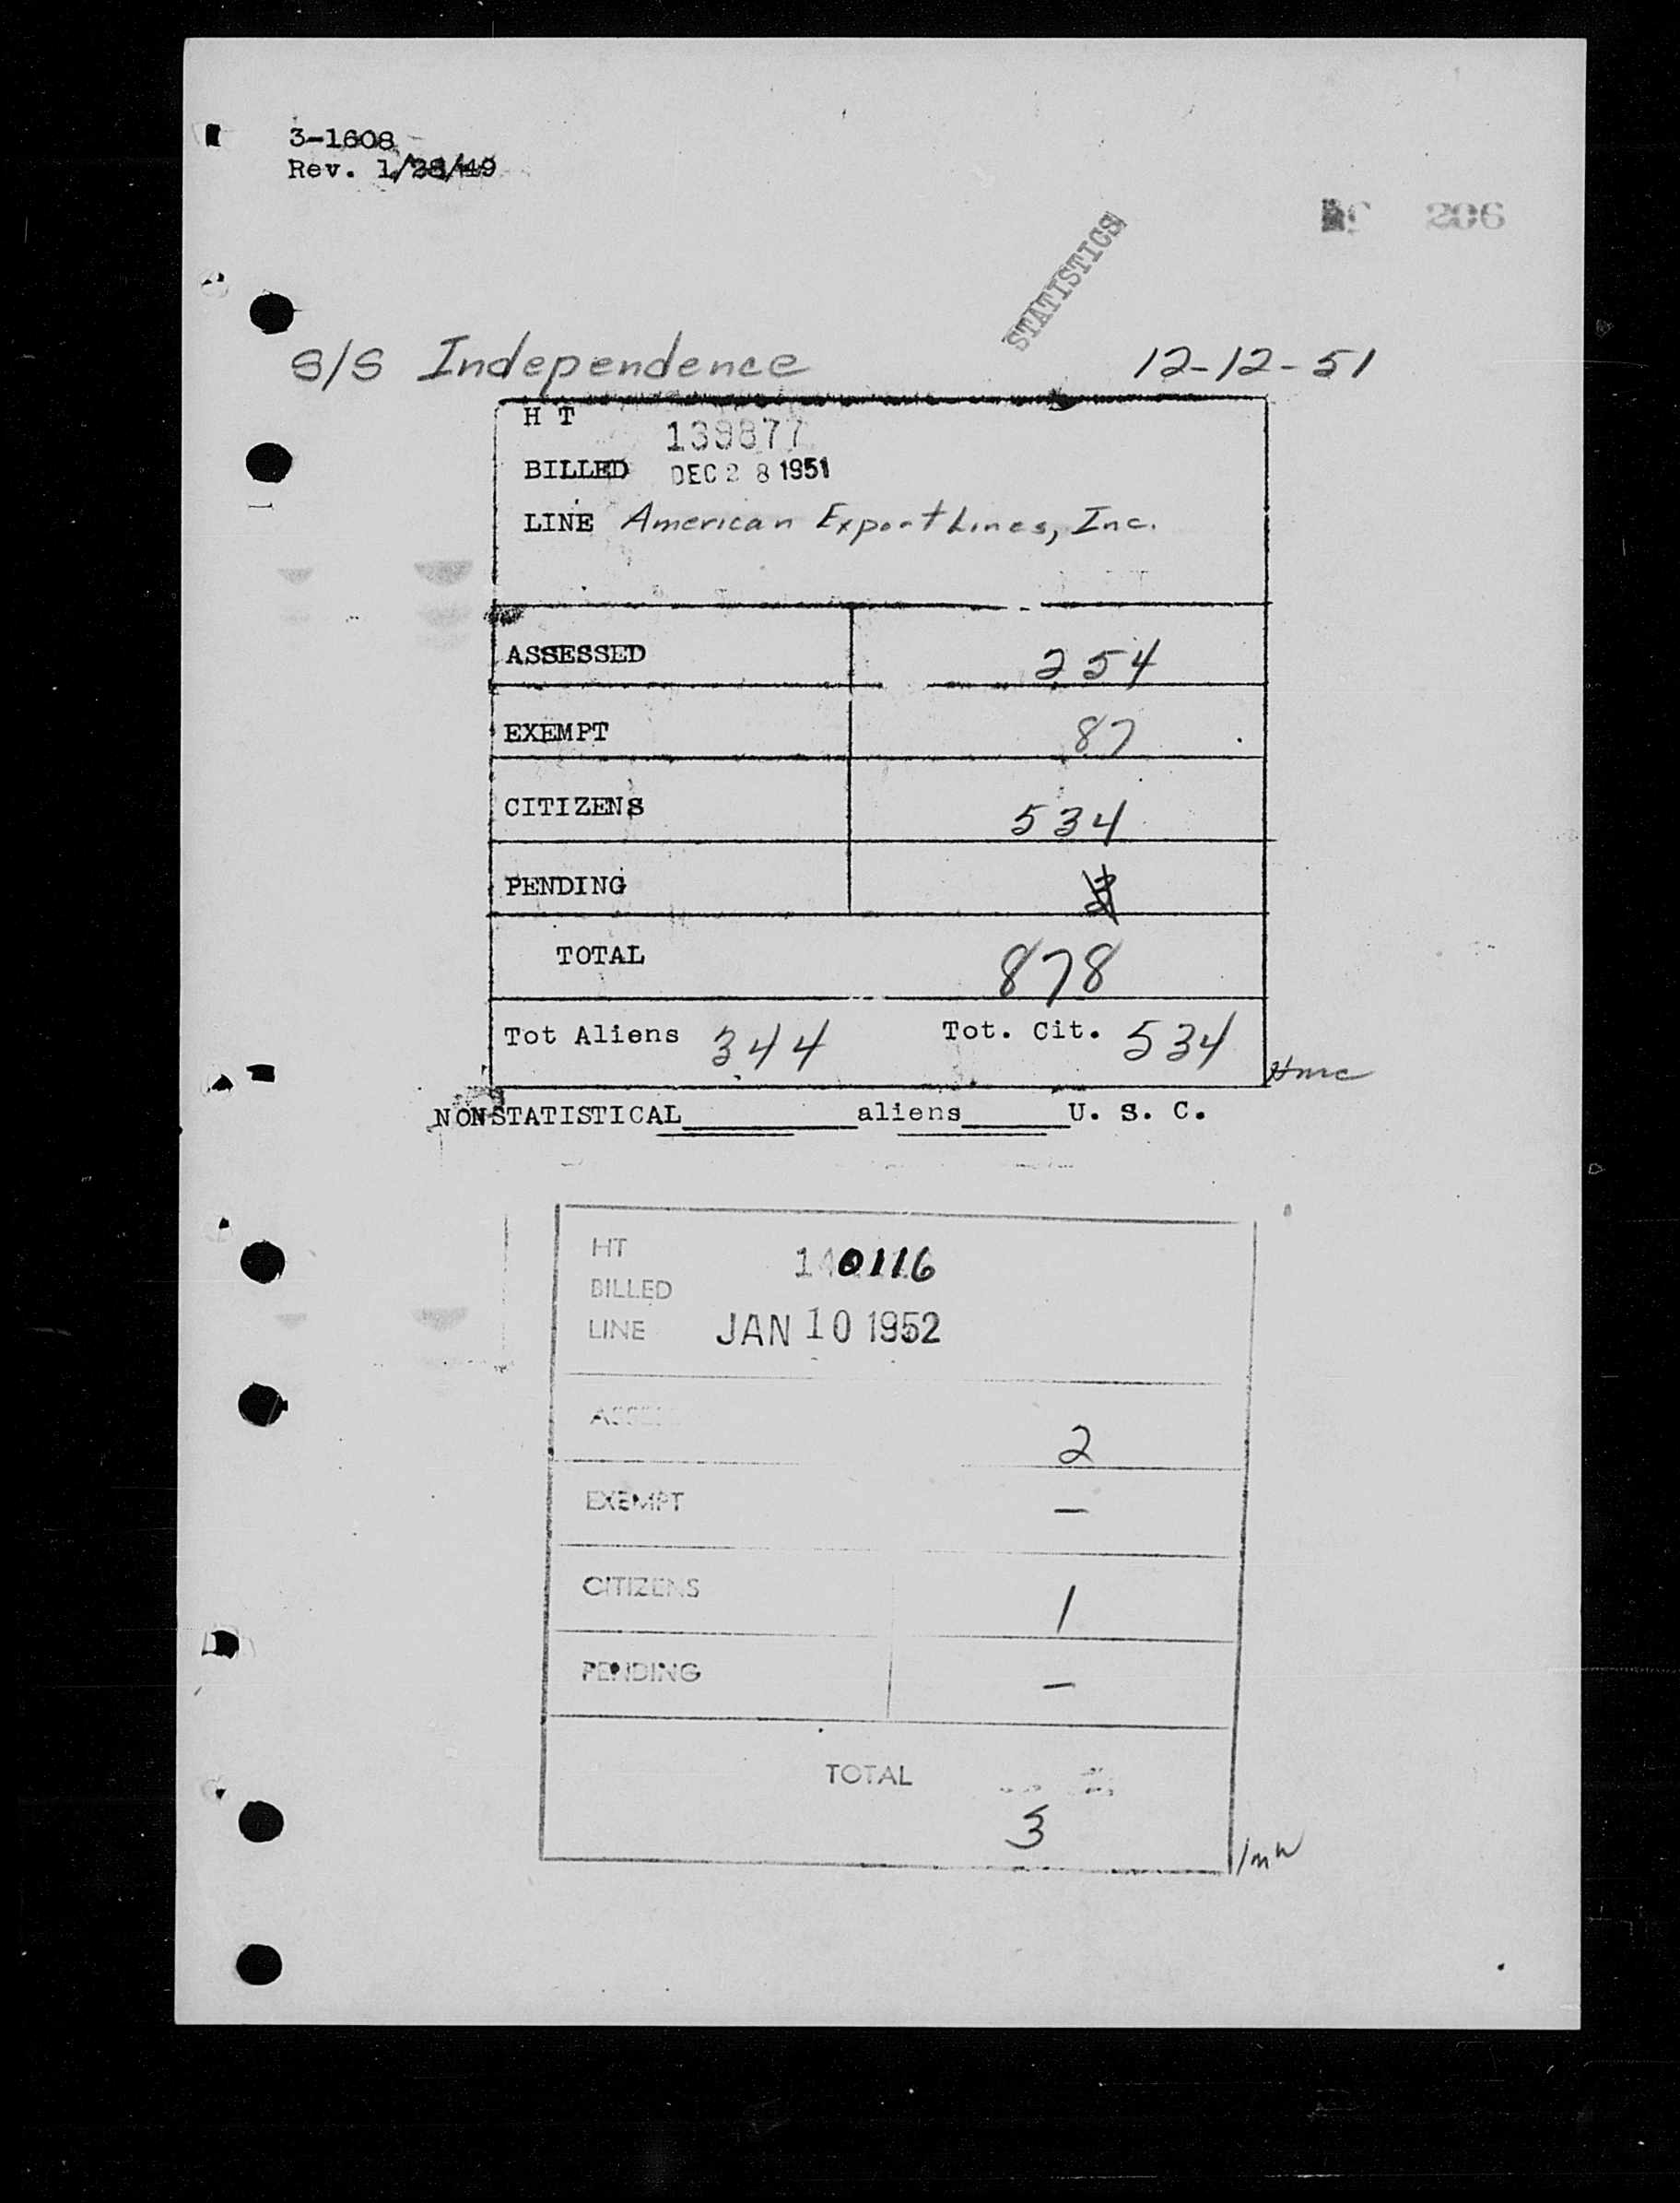 3-1608
Rev. 1/28/49
206
STATISTICS
S/S Independence 12-12-51
H T 139877
BILLED DEC 28 1951
LINE American Export Lines, Inc.
ASSESSED 254
EXEMPT 87
CITIZENS 534
PENDING
TOTAL 878
Tot Aliens 344 Tot. Cit. 534
NONSTATISTICAL aliens U. S. C.
HT 140116
BILLED
LINE JAN 10 1952
2
EXEMPT —
CITIZENS 1
PENDING —
TOTAL
3